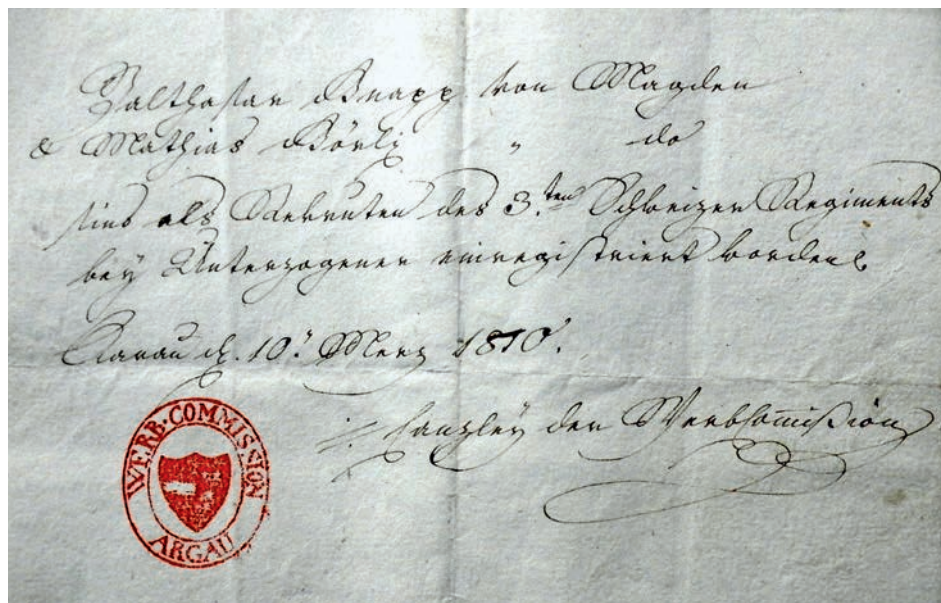 Balthasar Knapp von Magden
& Mathias Börli " do
sind als Rekruten des 3.ten Schweizer Regiments
bey Unterzogener einregistriert worden.
Aarau d. 10. Merz 1810.
Canzley der Werbkom̄ißion
WERB·COMMISSION
ARGAU